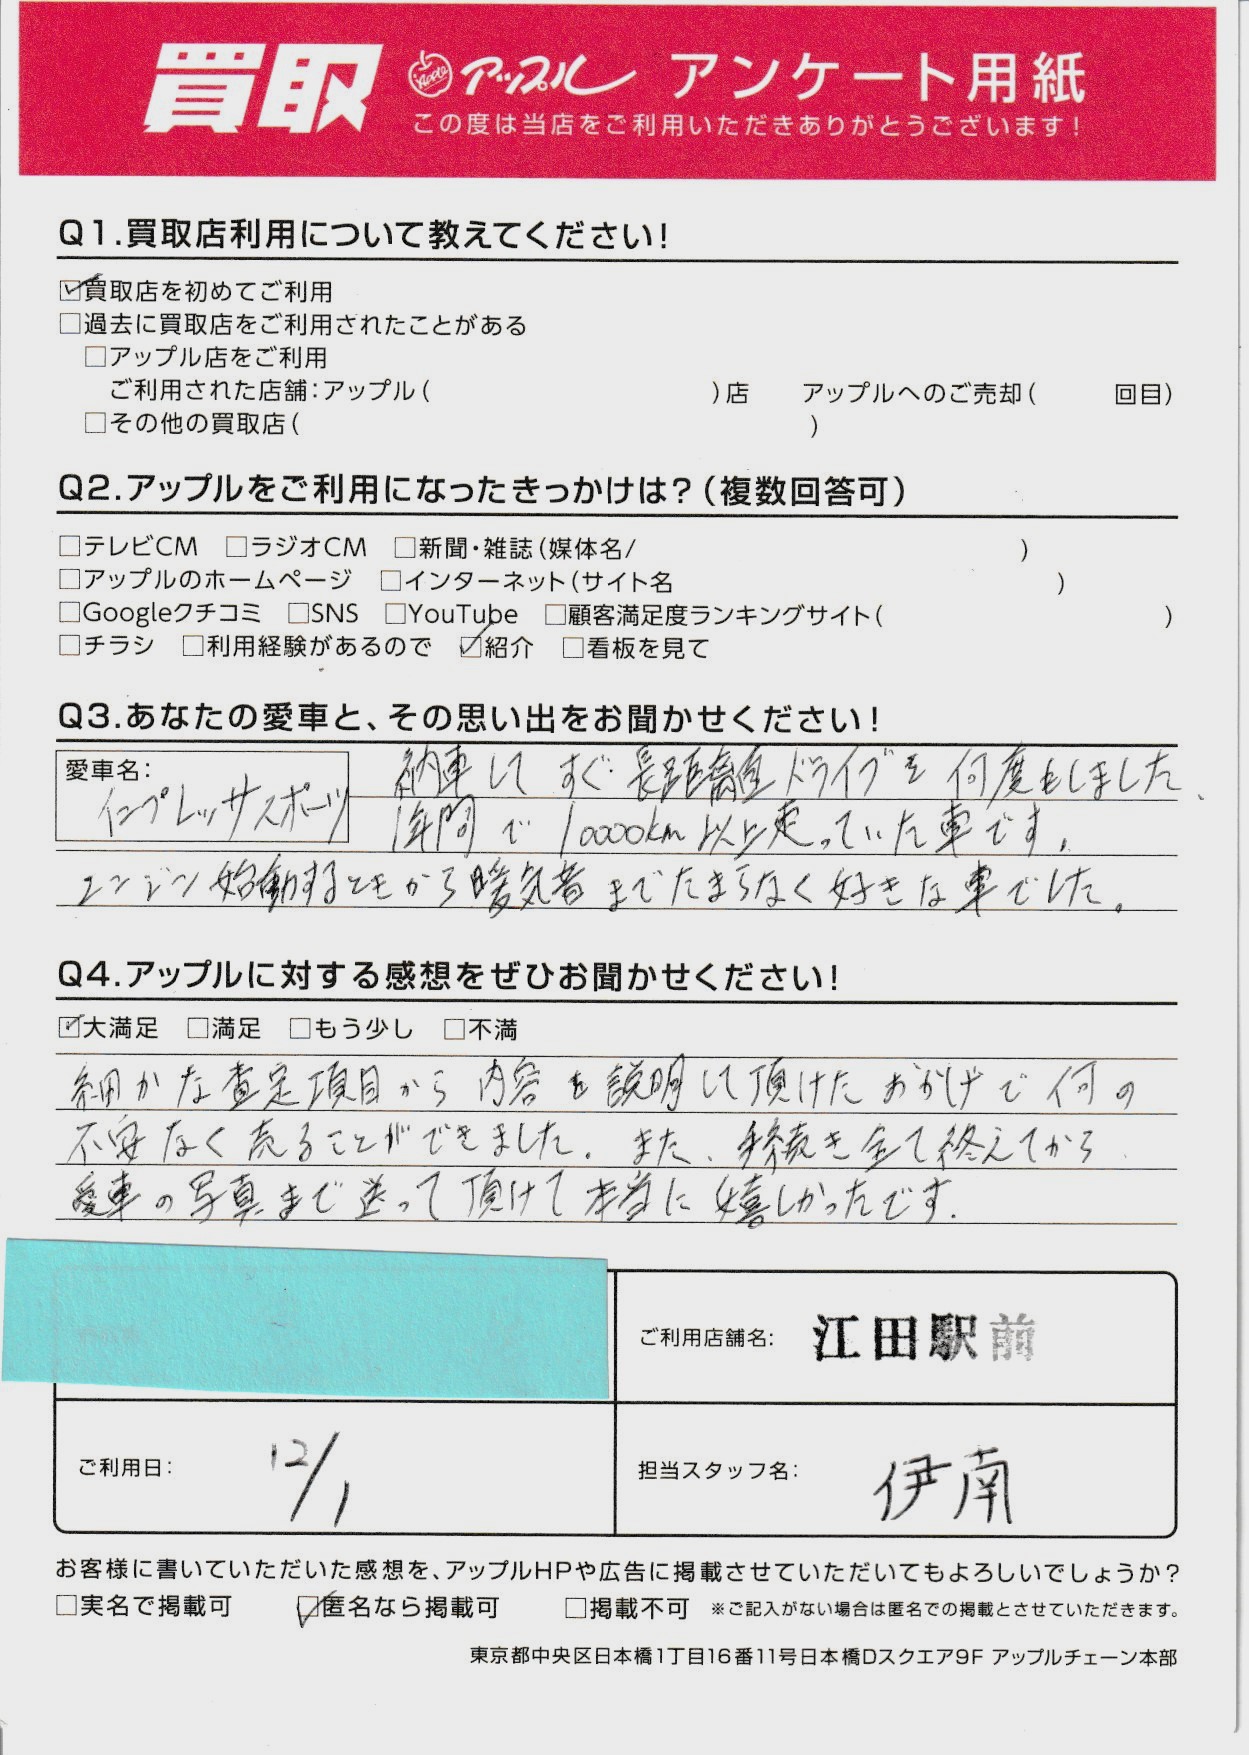 買取 Apple アップル アンケート用紙
この度は当店をご利用いただきありがとうございます!
Q1.買取店利用について教えてください!
☑買取店を初めてご利用
□過去に買取店をご利用されたことがある
□アップル店をご利用
ご利用された店舗:アップル( )店 アップルへのご売却( 回目)
□その他の買取店( )
Q2.アップルをご利用になったきっかけは?(複数回答可)
□テレビCM □ラジオCM □新聞・雑誌(媒体名/ )
□アップルのホームページ □インターネット(サイト名 )
□Googleクチコミ □SNS □YouTube □顧客満足度ランキングサイト( )
□チラシ □利用経験があるので ☑紹介 □看板を見て
Q3.あなたの愛車と、その思い出をお聞かせください!
愛車名:
インプレッサスポーツ
納車してすぐ長距離ドライブを何度もしました、
1年間で10000km以上走っていた車です。
エンジン始動するときから暖気音までたまらなく好きな車でした。
Q4.アップルに対する感想をぜひお聞かせください!
☑大満足 □満足 □もう少し □不満
細かな査定項目から内容を説明して頂けたおかげで何の
不安なく売ることができました。また、手続き全て終えてから
愛車の写真まで送って頂けて本当に嬉しかったです.
ご利用店舗名: 江田駅前
ご利用日: 12/1
担当スタッフ名: 伊南
お客様に書いていただいた感想を、アップルHPや広告に掲載させていただいてもよろしいでしょうか?
□実名で掲載可 ☑匿名なら掲載可 □掲載不可 ※ご記入がない場合は匿名での掲載とさせていただきます。
東京都中央区日本橋1丁目16番11号日本橋Dスクエア9F アップルチェーン本部